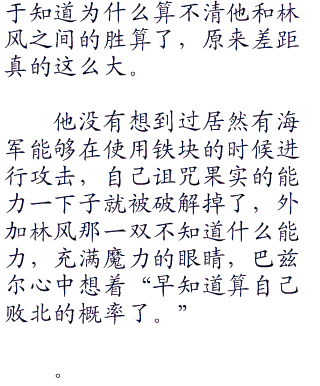 于知道为什么算不清他和林
风之间的胜算了，原来差距
真的这么大。
他没有想到过居然有海
军能够在使用铁块的时候进
行攻击，自己诅咒果实的能
力一下子就被破解掉了，外
加林风那一双不知道什么能
力，充满魔力的眼睛，巴兹
尔心中想着“早知道算自己
败北的概率了。”
。